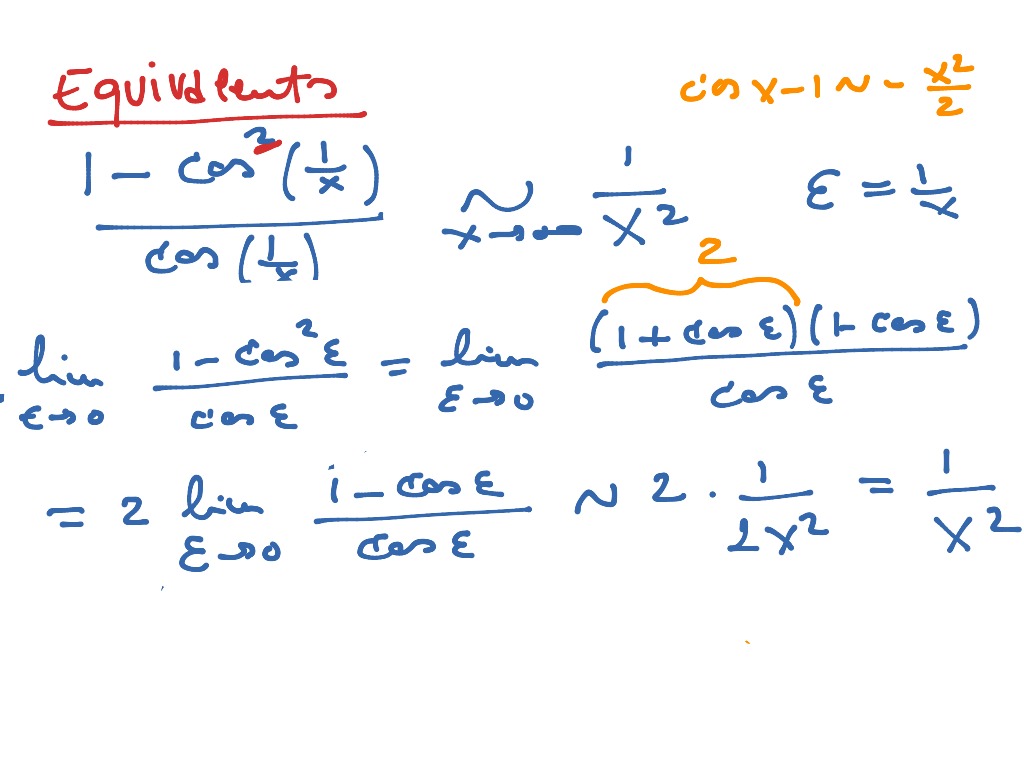 Equivalents
cos x - 1 ~ - x²/2
(1 - cos²(1/x)) / cos(1/x) ~ 1/x²
x → ∞
ε = 1/x
2
lim ε→0 (1 - cos²ε) / cos ε = lim ε→0 (1 + cos ε)(1 - cos ε) / cos ε
= 2 lim ε→0 (1 - cos ε) / cos ε ~ 2 · 1/2x² = 1/x²